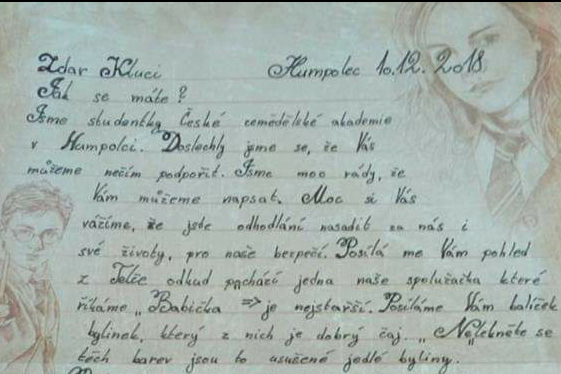 Zdar Kluci Humpolec 10.12.2018
Jak se máte?
Jsme studentky České zemědělské akademie
v Humpolci. Doslechly jsme se, že Vás
můžeme nečím podpořit. Jsme moc rády, že
Vám můžeme napsat. Moc si Vás
vážíme, že jste odhodlání nasadit za nás i
své životy, pro naše bezpečí. Posílá me Vám pohled
z Telče odkud pochází jedna naše spolužačka které
říkáme „Babička => je nejstarší. Posíláme Vám balíček
bylinek, který z nich je dobrý čaj. „Nelekněte se
těch barev jsou to usušené jedlé byliny.